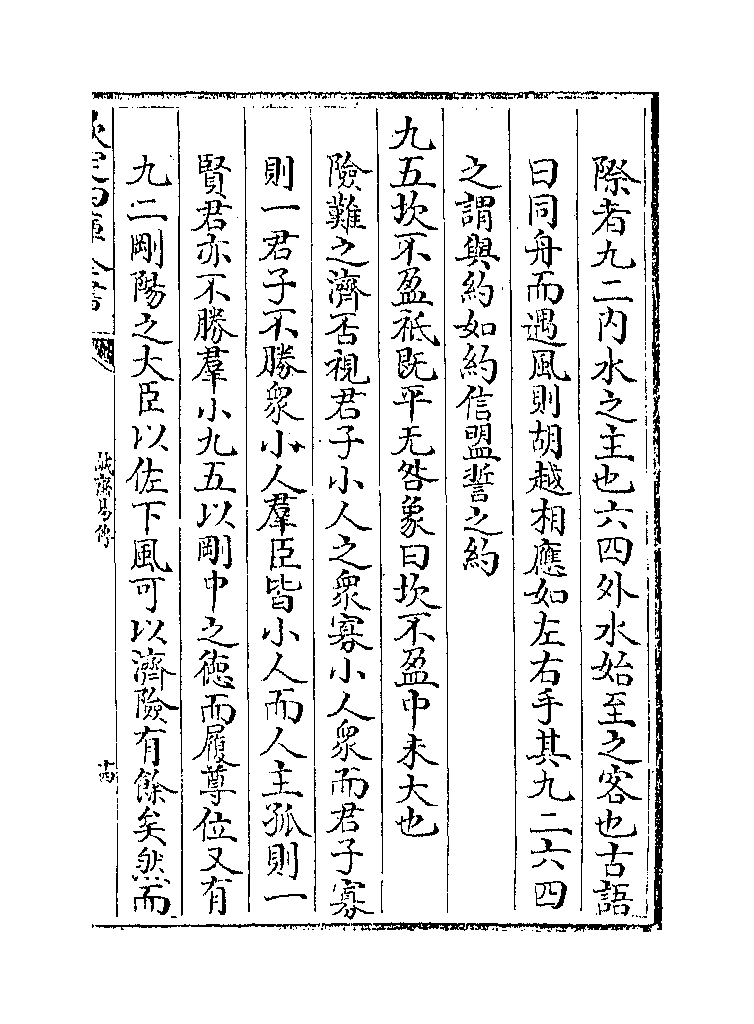 際者九二内水之主也六四外水始至之客也古語
曰同舟而遇風則胡越相應如左右手其九二六四
之謂與約如約信盟誓之約
九五坎不盈祗既平无咎象曰坎不盈中未大也
險難之濟否視君子小人之衆寡小人衆而君子寡
則一君子不勝衆小人羣臣皆小人而人主孤則一
賢君亦不勝羣小九五以剛中之徳而履尊位又有
九二剛陽之大臣以佐下風可以濟險有餘矣然而
欽定四庫全書
誠齋易傳
十四